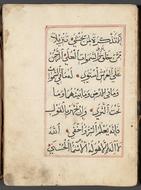 إلا تذكرة لمن يخشى تنزيلا
ممن خلق الأرض والسموات العلى الرحمن
على العرش استوى له ما في السموات
وما في الأرض وما بينهما وما
تحت الثرى وإن تجهر بالقول
فإنه يعلم السر وأخفى الله
لا إله إلا هو له الأسماء الحسنى